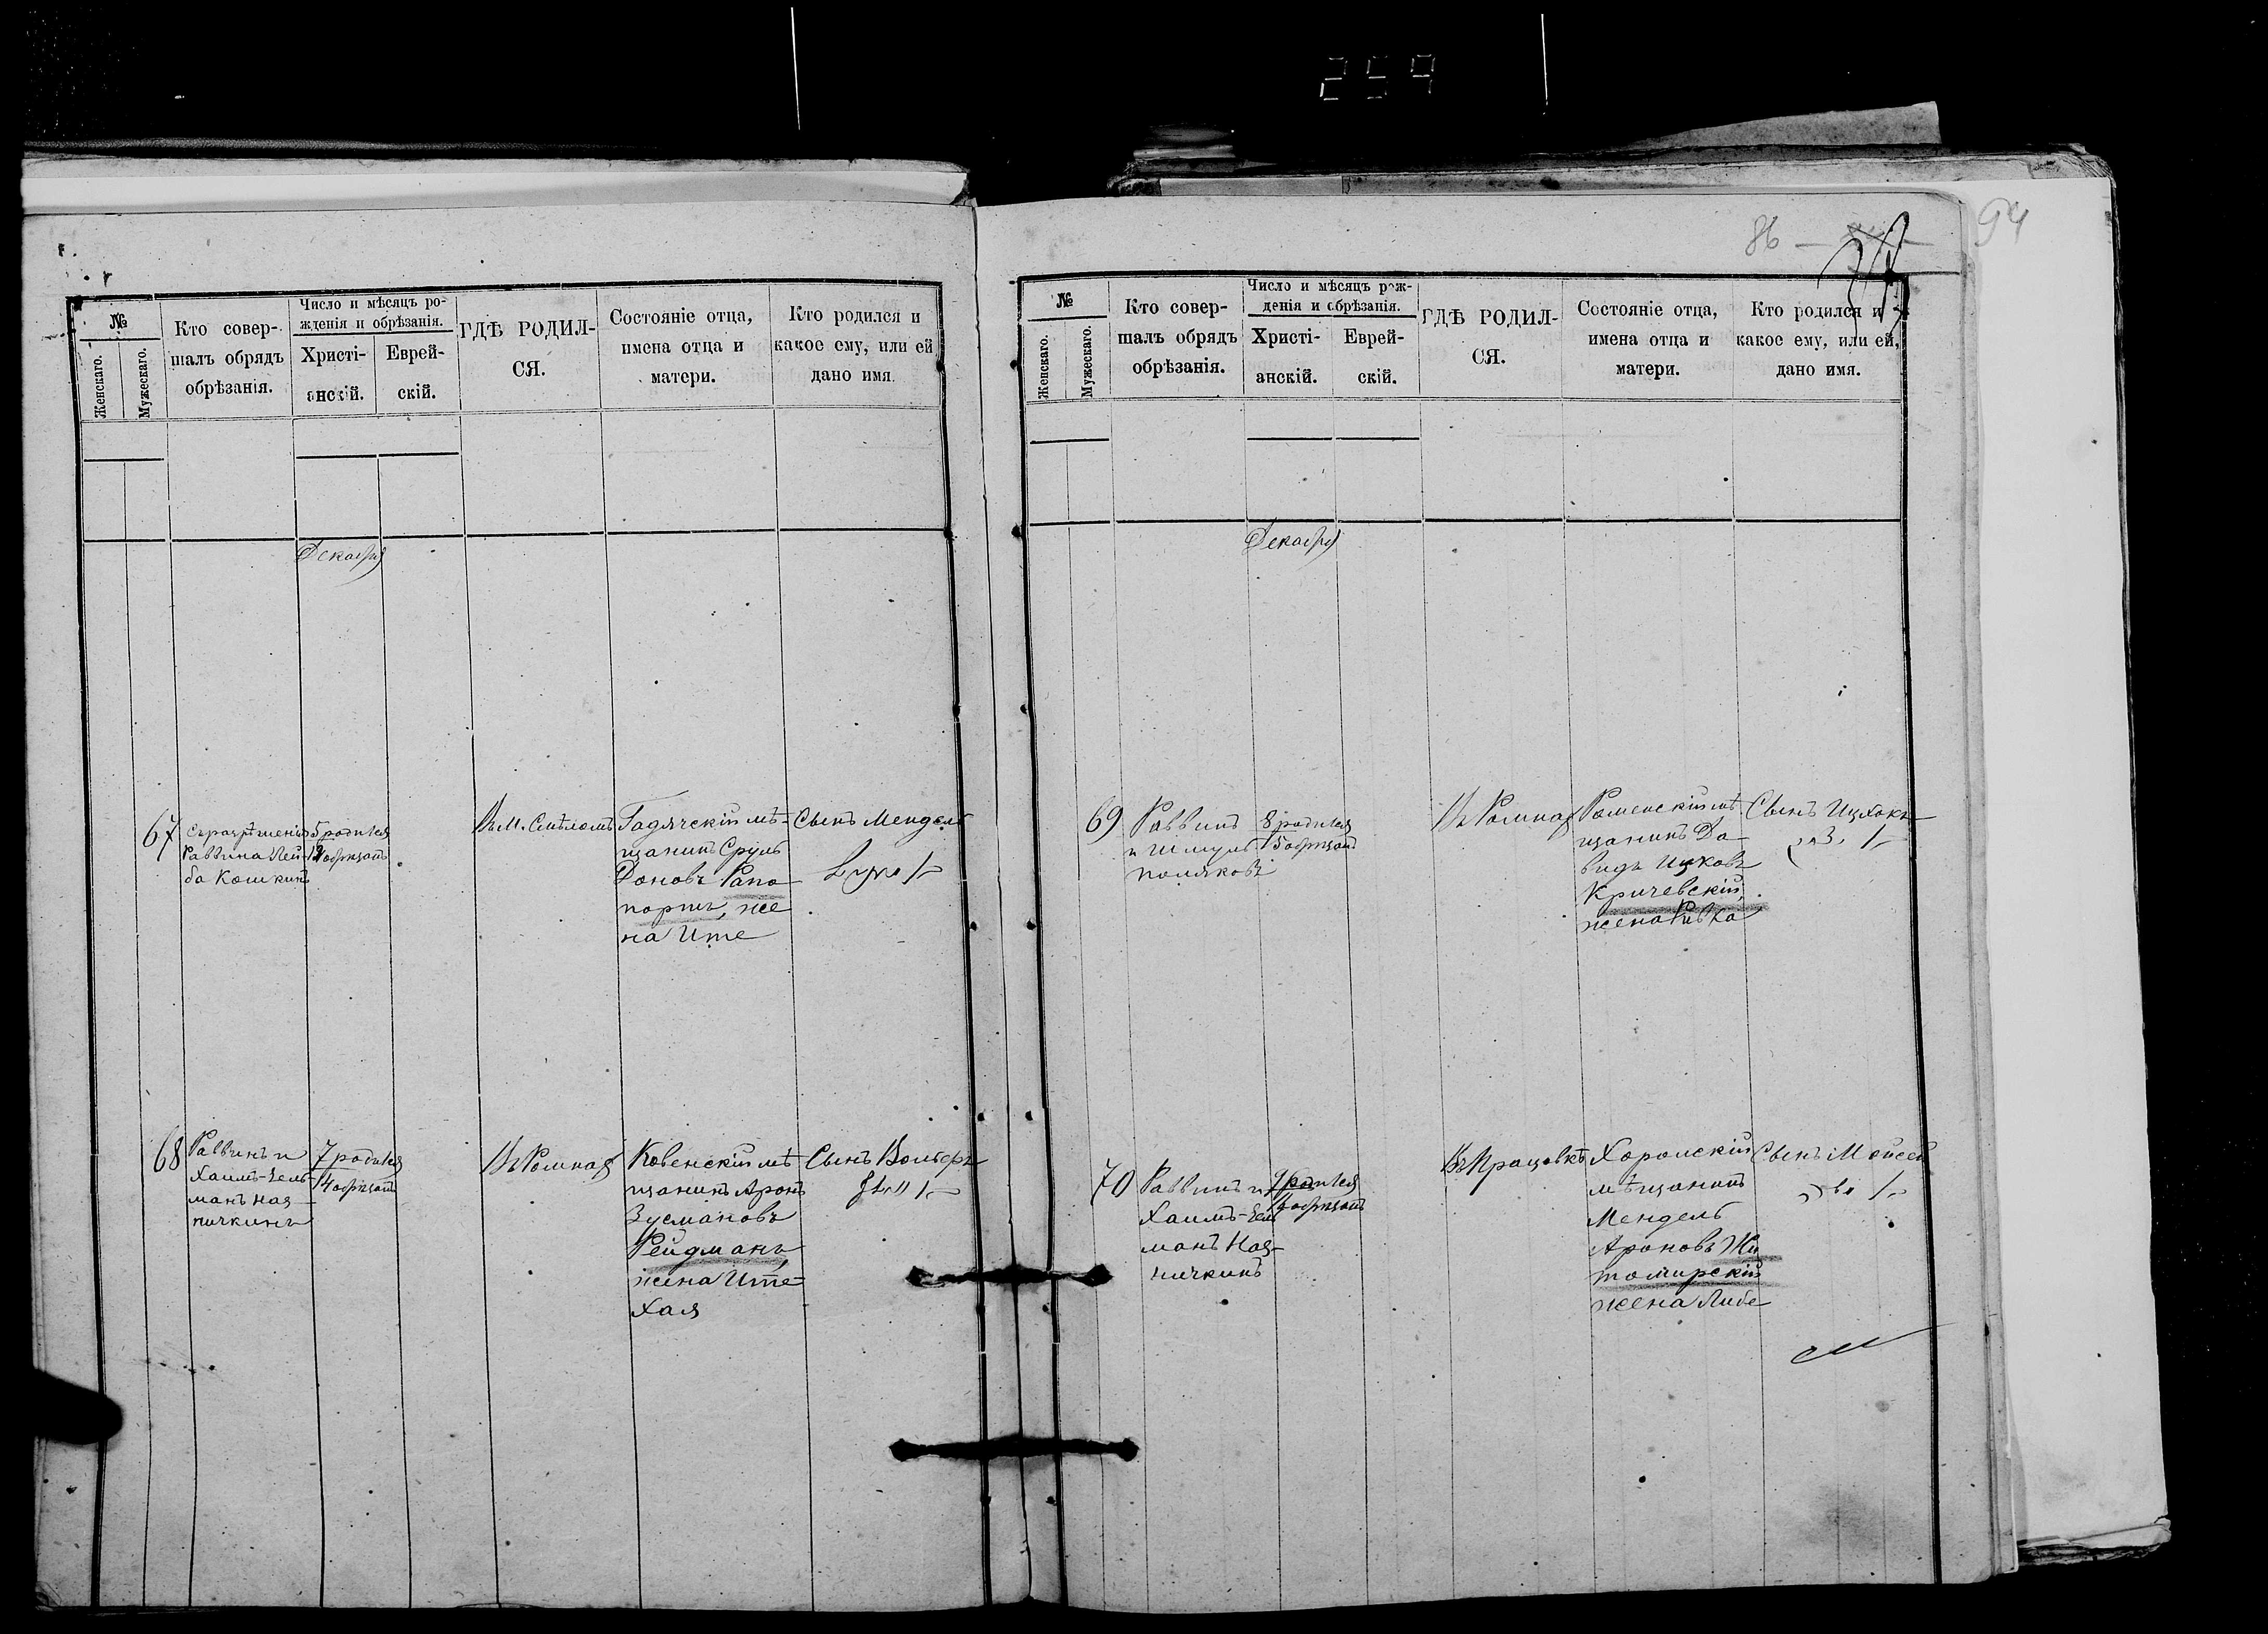 259
86
94
№
Женскаго.
Мужескаго.
Кто совер-
шалъ обрядъ
обрѣзанія.
Число и мѣсяцъ ро-
жденія и обрѣзанія.
Христі-
анскій.
Еврей-
скій.
ГДѢ РОДИЛ-
СЯ.
Состояніе отца,
имена отца и
матери.
Кто родился и
какое ему, или ей
дано имя.
Декабря
67
Съ разрѣшенія
Раввина Лей-
ба Кошкинъ
5 родился
12 обрѣзанъ
Въ м. Смѣломъ
Гадячскій мѣ-
щанинъ Сруль
Доновъ Рапо
портъ, же
на Ите
Сынъ Мендель
68
Раввинъ и
Хаимъ-Зель-
манъ Каз-
ничкинъ
7 родился
14 обрѣзанъ
Въ Ромнах
Ковенскій мѣ
щанинъ Аронъ
Зусмановъ
Рейдманъ
жена Ите-
Хая
Сынъ Вольфъ
№
Женскаго.
Мужескаго.
Кто совер-
шалъ обрядъ
обрѣзанія.
Число и мѣсяцъ рож-
денія и обрѣзанія.
Христі-
анскій.
Еврей-
скій.
ГДѢ РОДИЛ-
СЯ.
Состояніе отца,
имена отца и
матери.
Кто родился и
какое ему, или ей,
дано имя.
Декабря
69
Раввинъ
и Шмуль
Поляковъ
8 родился
15 обрѣзанъ
Въ Ромнах
Роменскій мѣ
щанинъ Да-
видъ Ицковъ
Кричевскій,
жена Ривка
Сынъ Ицхокъ
70
Раввинъ и
Хаимъ-Зель
манъ Каз-
ничкинъ
9 родился
обрѣзанъ
Хорольскій
мѣщанинъ
Мендель
Ароновъ Жи
томирскій
жена Либе
Сынъ Мойсей